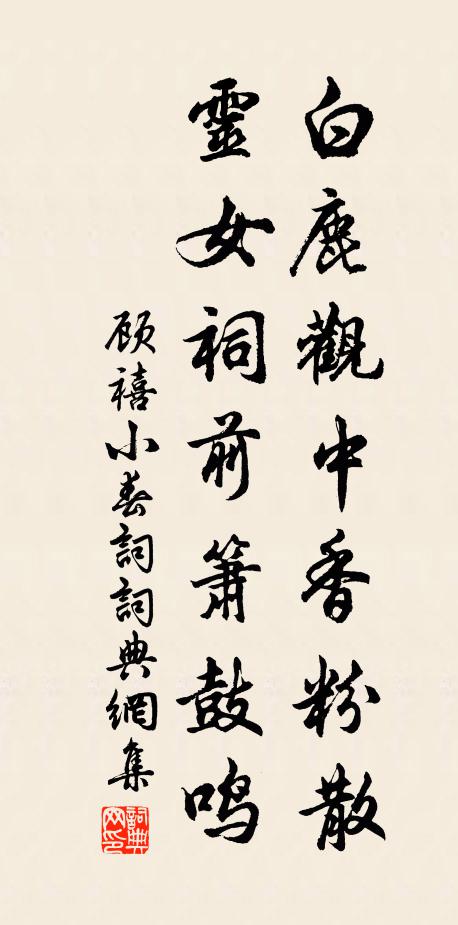 白鹿觀中香粉散
靈女祠前簫鼓鳴
顾禧小春詞詞典網集
詞典网印